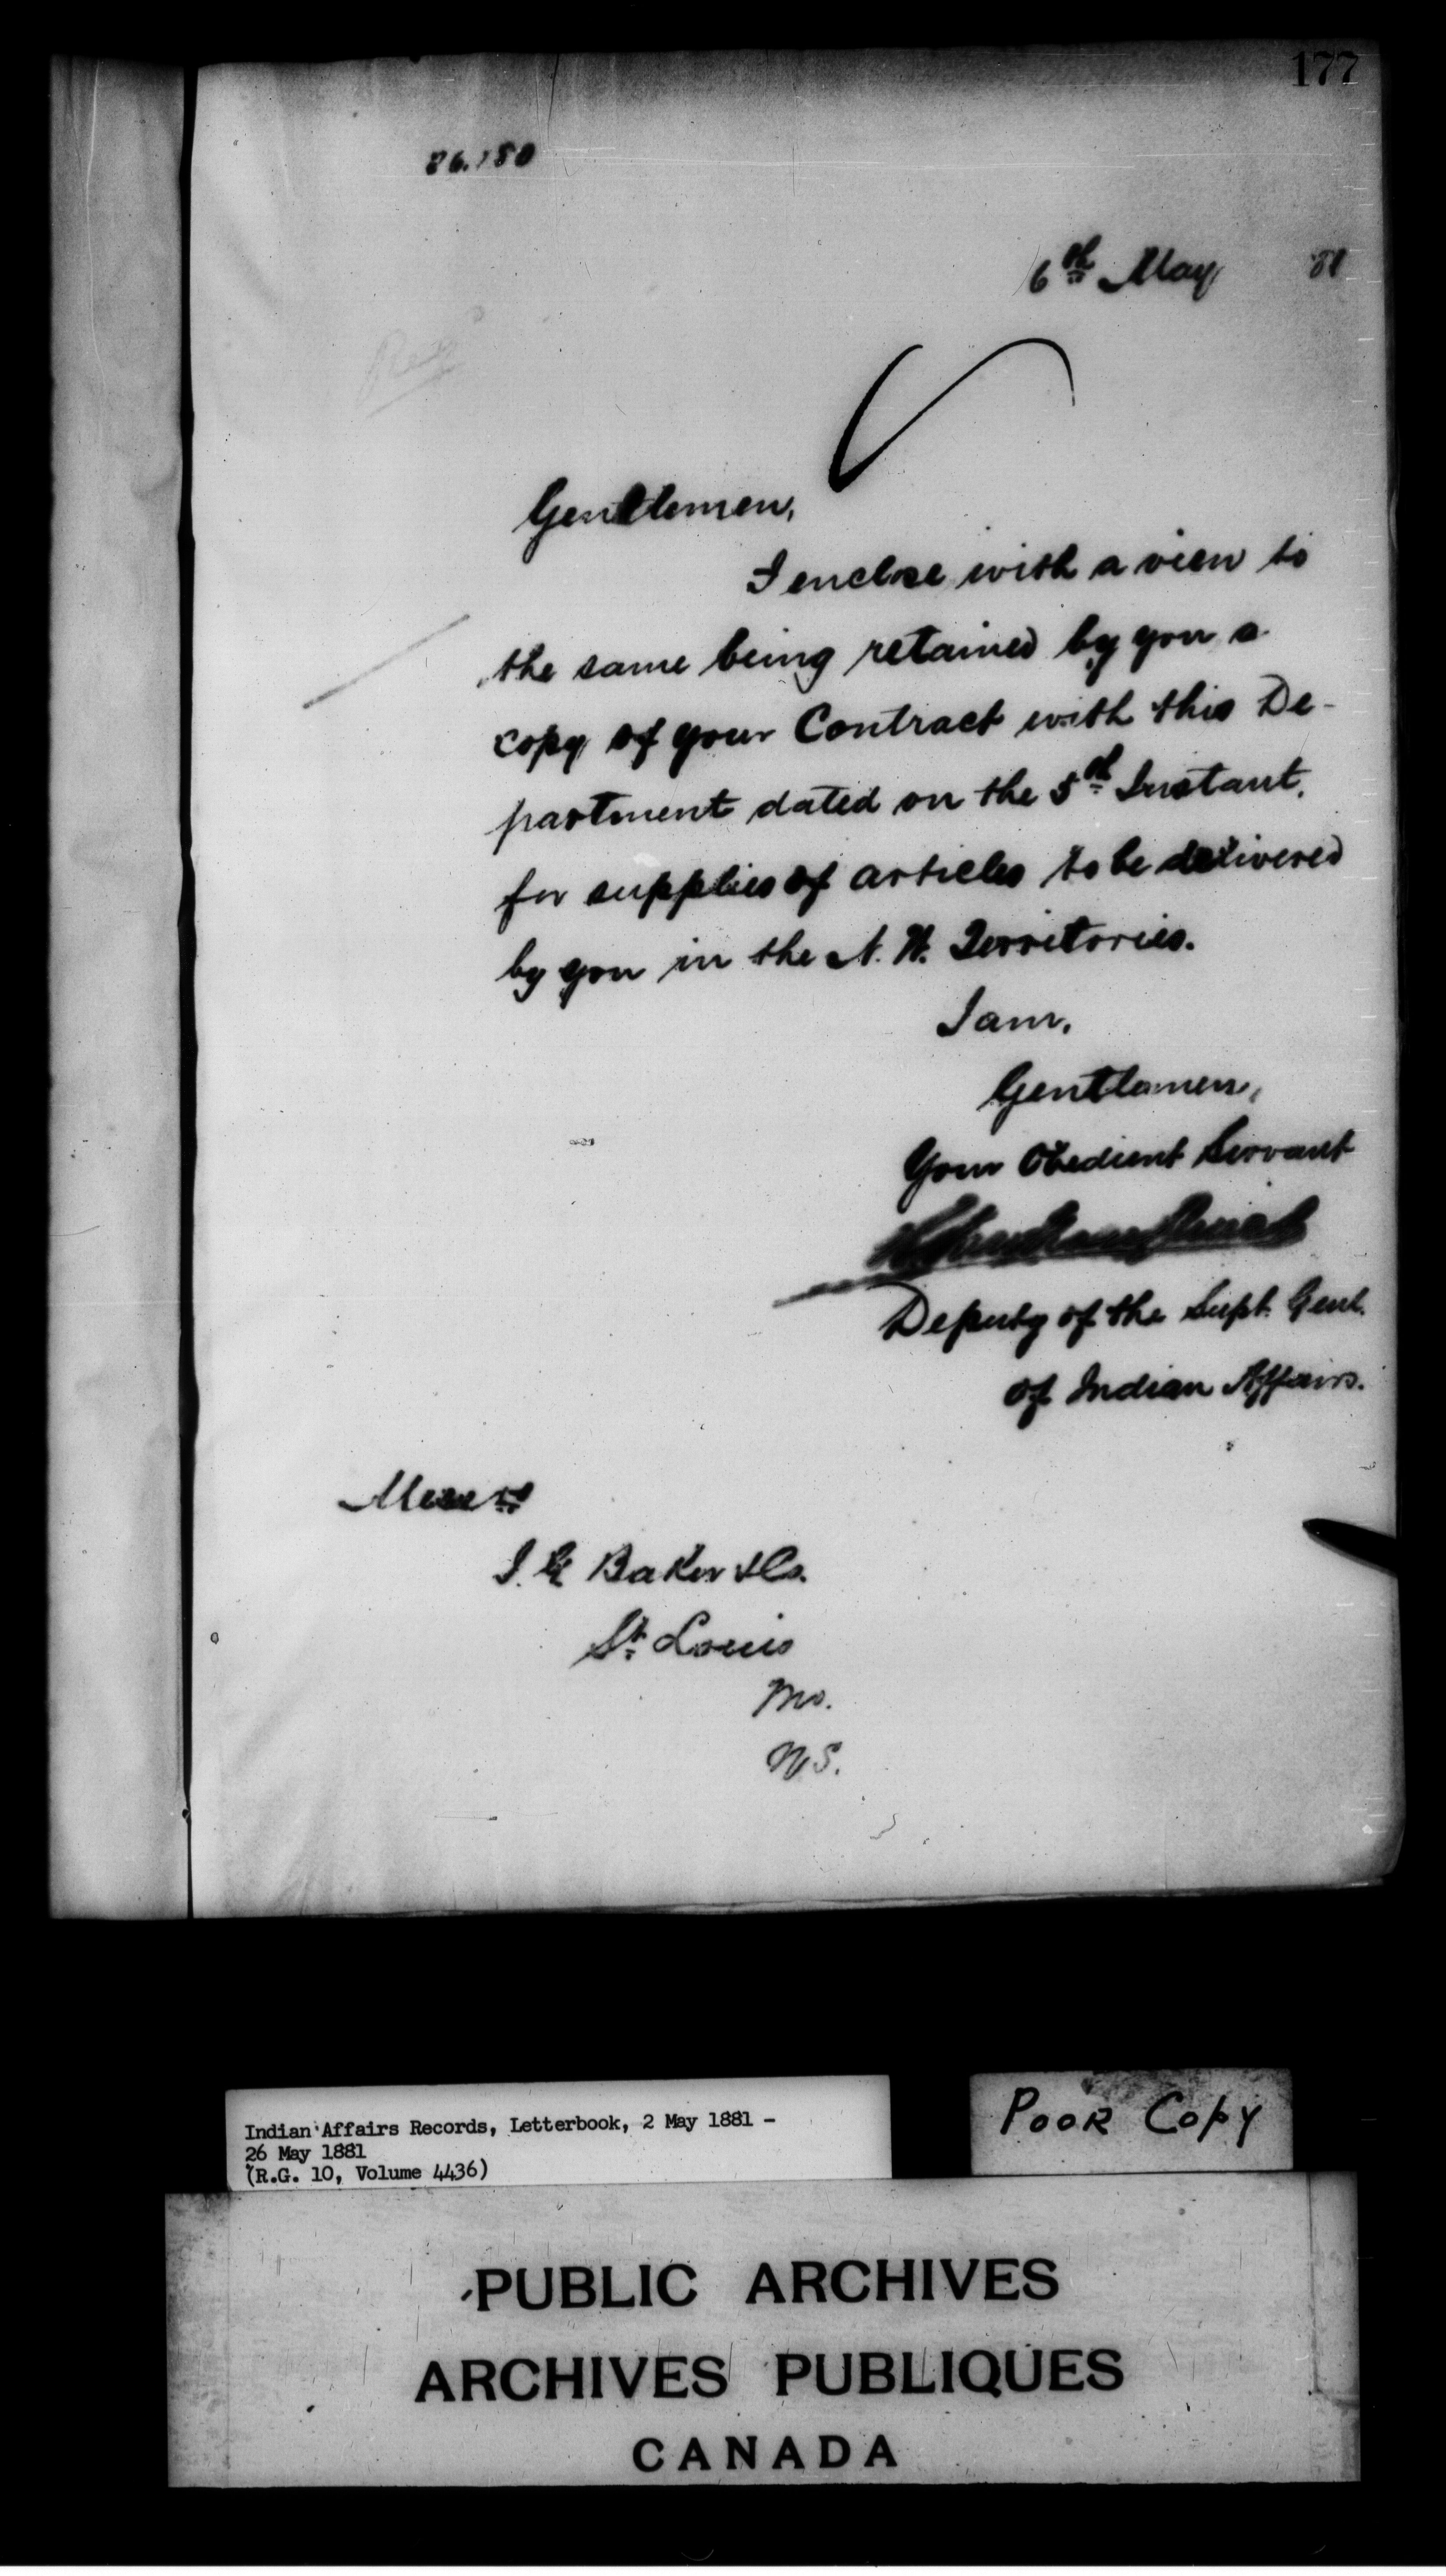 177
26.180
6th May '81
Gentlemen,
I enclose with a view to
the same being retained by you a
copy of your Contract with this De-
partment dated on the 5th Instant.
for supplies of articles to be delivered
by you in the N. W. Territories.
I am,
Gentlemen,
Your Obedient Servant
Deputy of the Supt. Genl.
of Indian Affairs.
Messrs
I. G Baker & Co.
St. Louis
Mo.
Indian Affairs Records, Letterbook, 2 May 1881 -
26 May 1881
(R.G. 10, Volume 4436)
POOR COPY
PUBLIC ARCHIVES
ARCHIVES PUBLIQUES
CANADA